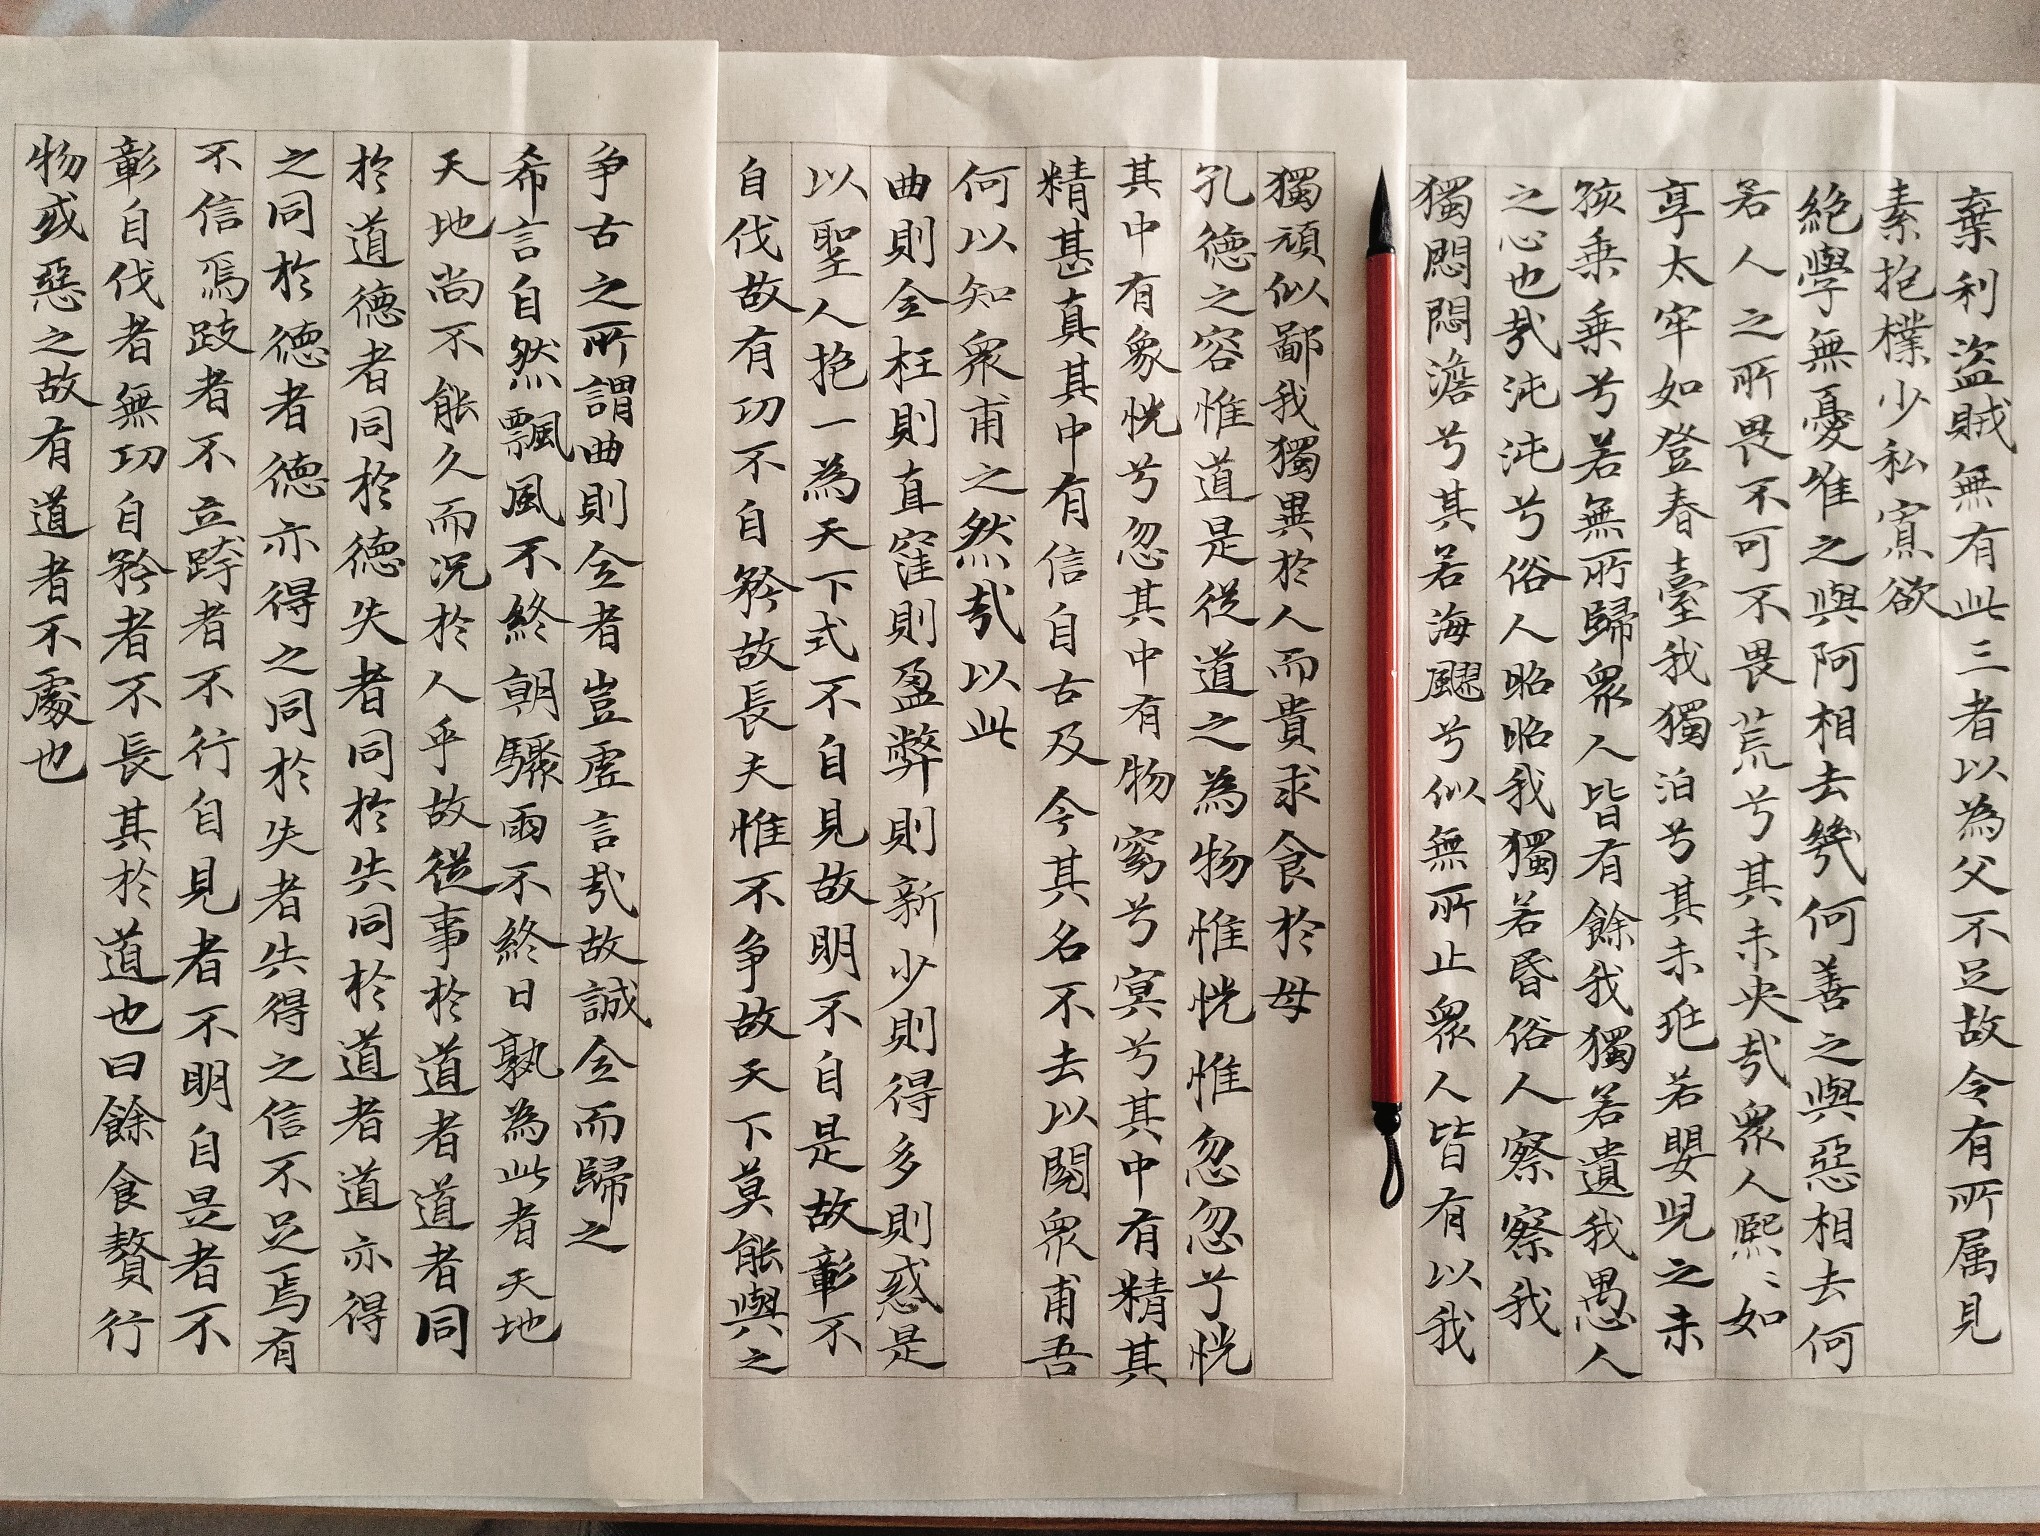 棄利盗賊無有此三者以為父不足故令有所属見
素抱樸少私寡欲
絶學無憂唯之與阿相去幾何善之與惡相去何
若人之所畏不可不畏荒兮其未央哉衆人熙〻如
享太牢如登春臺我獨泊兮其未兆若嬰児之未
孩乗乗兮若無所歸衆人皆有餘我獨若遺我愚人
之心也哉沌沌兮俗人昭昭我獨若昏俗人察察我
獨悶悶澹兮其若海飂兮似無所止衆人皆有以我
獨頑似鄙我獨異於人而貴求食於母
孔德之容惟道是従道之為物惟恍惟忽忽兮恍
其中有象恍兮忽其中有物窈兮冥兮其中有精其
精甚真其中有信自古及今其名不去以閱衆甫吾
何以知衆甫之然哉以此
曲則全枉則直窪則盈弊則新少則得多則惑是
以聖人抱一為天下式不自見故明不自是故彰不
自伐故有功不自矜故長夫惟不争故天下莫能與之
争古之所謂曲則全者豈虚言哉故誠全而歸之
希言自然飄風不終朝驟雨不終日孰為此者天地
天地尚不能久而況於人乎故従事於道者道者同
於道德者同於德失者同於失同於道者道亦得
之同於德者德亦得之同於失者失得之信不足焉有
不信焉跂者不立跨者不行自見者不明自是者不
彰自伐者無功自矜者不長其於道也曰餘食贅行
物或惡之故有道者不處也